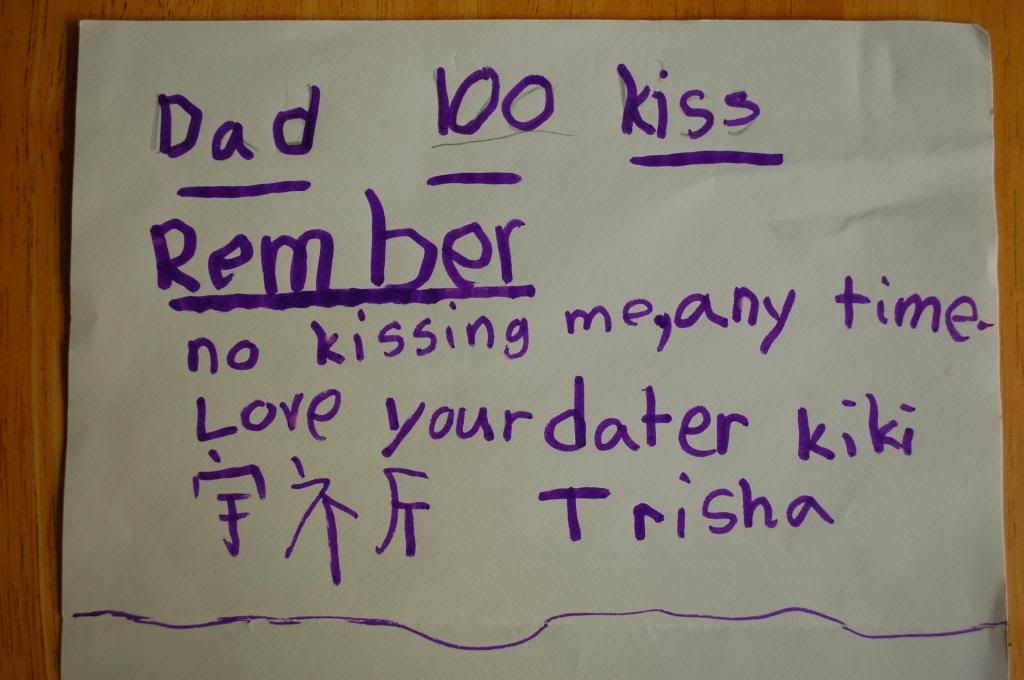 Dad 100 kiss
Rember
no kissing me, any time.
Love your dater kiki
宇祈 Trisha